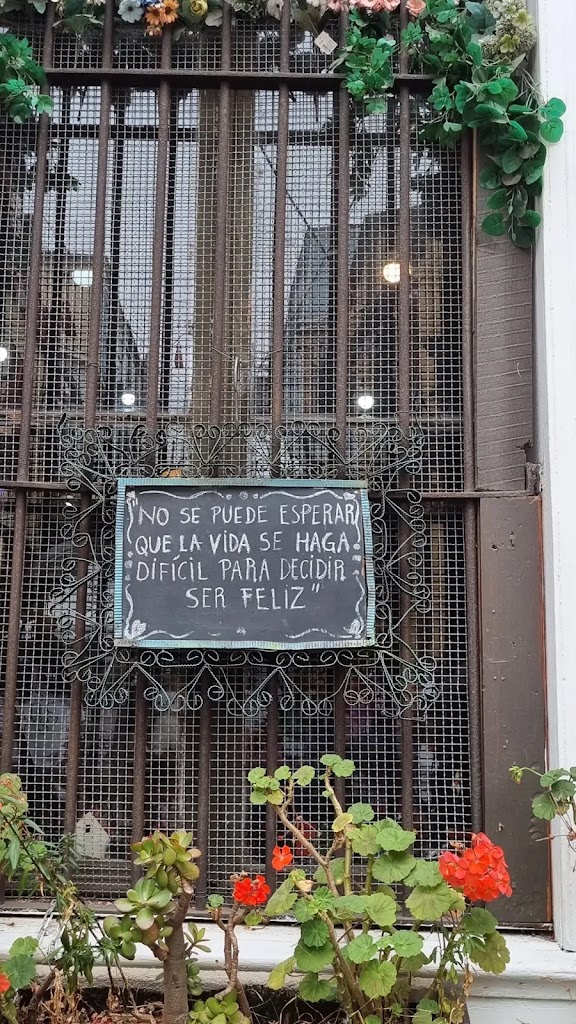 "NO SE PUEDE ESPERAR
QUE LA VIDA SE HAGA
DIFÍCIL PARA DECIDIR
SER FELIZ"